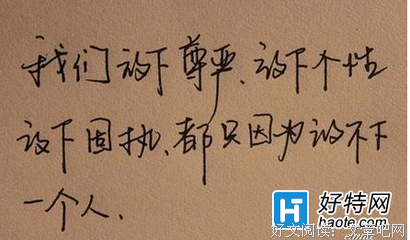 我们放下尊严、放下个性
放下固执、都只因为放不下
一个人、
好特网
haote.com
好文阅读：文章吧网